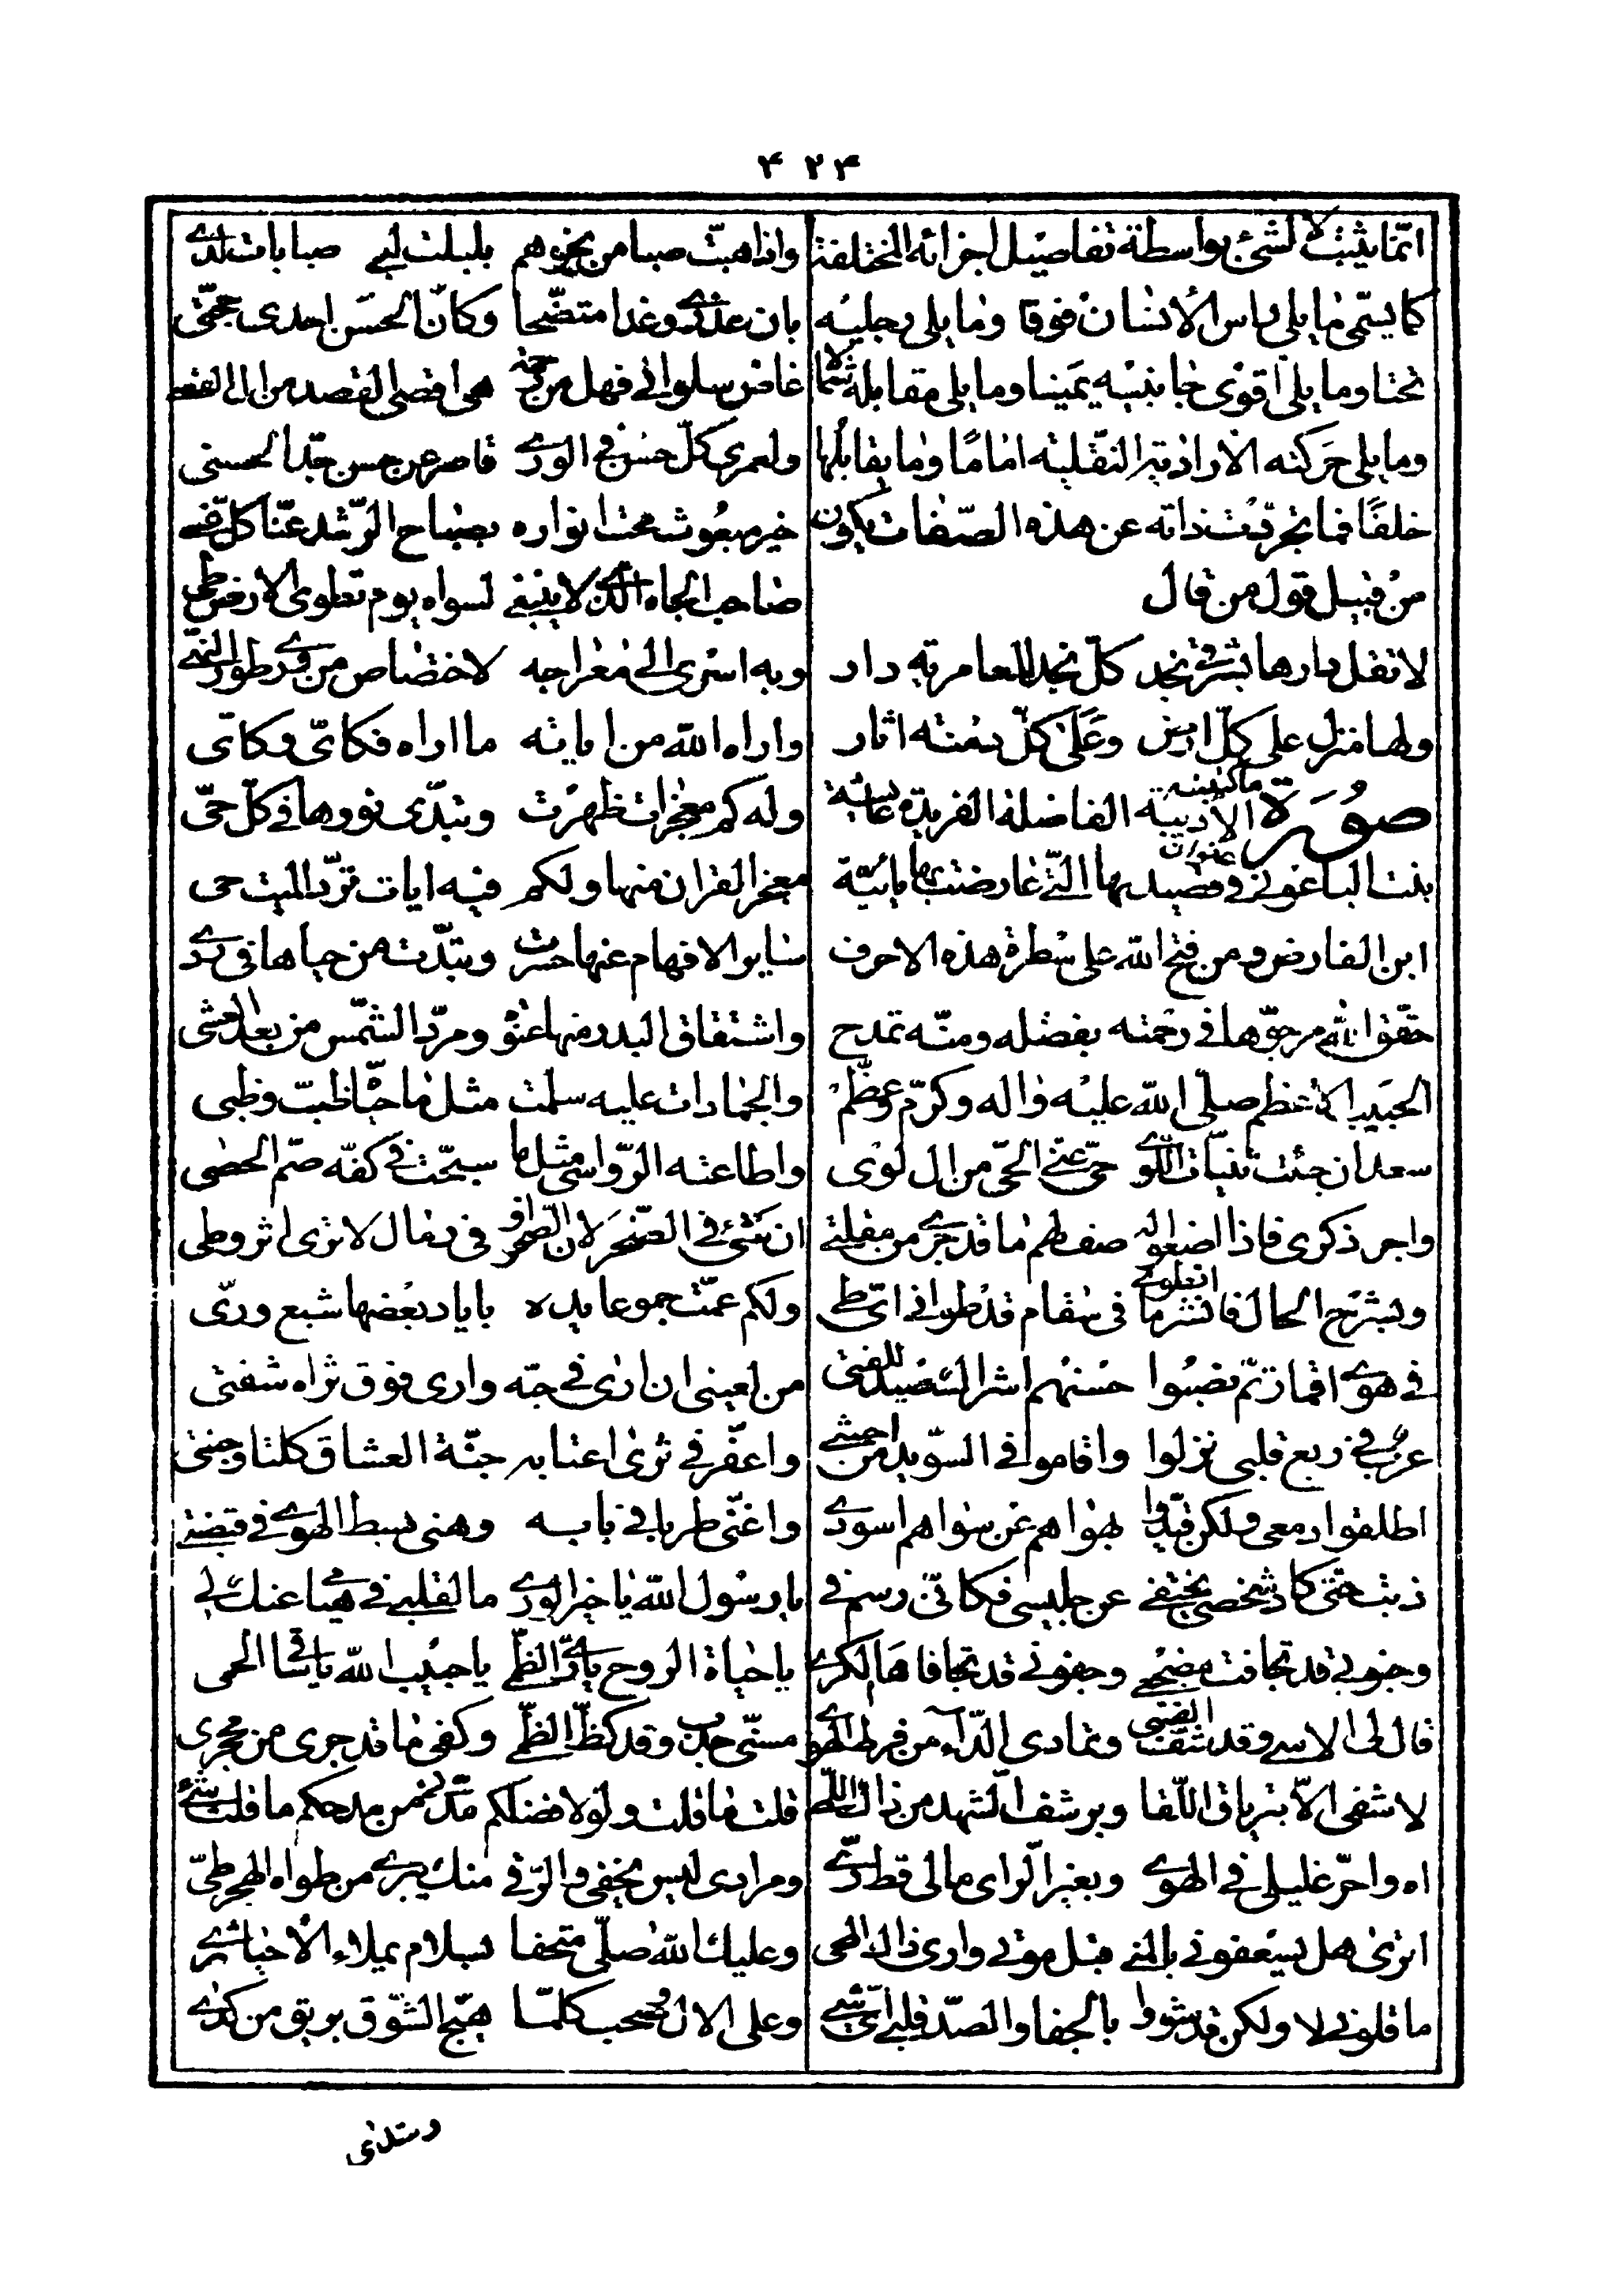 ۴۲۴
انّما يثبت لا لشئ بواسطة تفاصيل اجزائه المختلفة
كما يسمّى ما يلى راس الانسان فوقا وما يلى رجليه
تحتا وما يلى اقوى جانبيه يمينا وما يلى مقابله شمالا
وما يلى حركته الاراديّة النقليّة اماما وما يقابلها
خلفا فما تجرّدت ذاته عن هذه الصّفات يكون
من قبيل قول من قال
لا تقل دارها بشرقى نجد كلّ نجد للعامرية دار
ولها منزل على كلّ ارض وعلى كلّ دمنة اثار
صورة ما كتبته الاديبة الفاضلة الفريدة عايشة
بنت الباعونى عنوان قصيدتها الّتى عارضت بها يائيّة
ابن الفارض ومن فتح الله على مسطرة هذه الاحرف
حقّق الله مرجوّها فى رحمته بفضله ومنّه تمدح
الحبيب الاعظم صلّى الله عليه واله وكرّم وعظّم
سعد ان جئت ثنيّات اللّوى حىّ عنّى الحىّ من ال لوى
واجر ذكرى فاذا اصغوا له صف لهم ما قد جرى من مقلتى
وبشرح الحال فانشر ما انطوى فى سقام قد طوانى اىّ طى
فى هوى اقمار تمّ نصبوا حسنهم اشراك صيد للفتى
عرب فى ربع قلبى نزلوا واقاموا فى السّويدا من احشى
اطلقوا دمعى ولكن قيّدوا بهواهم عن سواهم اسودى
ذبت حتّى كاد شخصى يختفى عن جليسى فكانّى رسم فى
وجنوبى قد تجافت مضجعى وجفونى قد تجافاها الكرى
قال لى الاسى وقد شفّ الضّنى وتمادى الدّاء من فرط الهوى
لا شفى الّا بترياق اللّقا وبرشف الشهد من ذاك اللّمى
اه واحرّ غليلى فى الهوى وبغير الراى مالى قط رىّ
اترى هل يسعفونى بالمنى قبل موتى وارى ذاك المحى
ما قلونى لا ولكن قد شووا بالجفا والصّدّ قلبى اىّ شى
واذا هبّت صبا من نحوهم بلبلت لبى صبابات لدى
بان عذرى وغدا متضّحا وكانّ الحسن احدى حجّتى
غاض سلوانى فهل من رحمة هى اقصى القصد من اىّ الى
ولعمرى كلّ حسن فى الورى قاصر عن حسن جدّ الحسنى
خير مبعوث محت انواره بصباح الرّشد عنّا كلّ غى
صاحب الجاه الّذى لا ينبغى لسواه يوم تطوى الارض طى
وبه اسرى الى معراجه لاختصاص من ورى طور النهى
واراه الله من اياته ما اراه فكانّى وكاىّ
وله كم معجزات ظهرت وتبدّى نورها فى كلّ حىّ
معجز القران منها ولكم فيه ايات تردّ الميت حى
ساير الافهام عنها حسرت وتبدّت من حباها فى ردى
واشتقاق البدر منها عنوة ومردّ الشّمس من بعد العشى
والجمادات عليه سلمت مثل ما حيّا ظبت وظبى
واطاعته الرّواسى مثل ما سبّحت فى كفّه صمّ الحصى
ان مشى فى الصّخر لان الصخر او فى رمال لا ترى اثر وطى
ولكم عمّت جموعا يده باياد بعضها شبع ورىّ
من لعينى ان ارى فى حيّه وارى فوق ثراه شفتى
واعفّر فى ثرى اعتابه جنّة العشاق كلتا وجنتى
واغنّى طربا فى بابه وهنى بسط الهوى فى قبضتى
يا رسول الله يا خير الورى ما لقلبى فى هيامى عنك لى
يا حياة الروح يا رىّ الظمى يا حبيب الله يا شافى الحمى
مسّنى جدب وقد كظّ الظّمى وكفى ما قد جرى من محجرى
قلت ما قلت ولولا فضلكم مدّنى من مدحكم ما قلت شئ
ومرادى ليس يخفى والرّقى منك يبرى من طواه الهجر طىّ
وعليك الله صلّى متحفا بسلام يملاء الاحياء شرى
وعلى الال وصحب كلّما هيّج الشّوق بريق من كدى
وستدنى